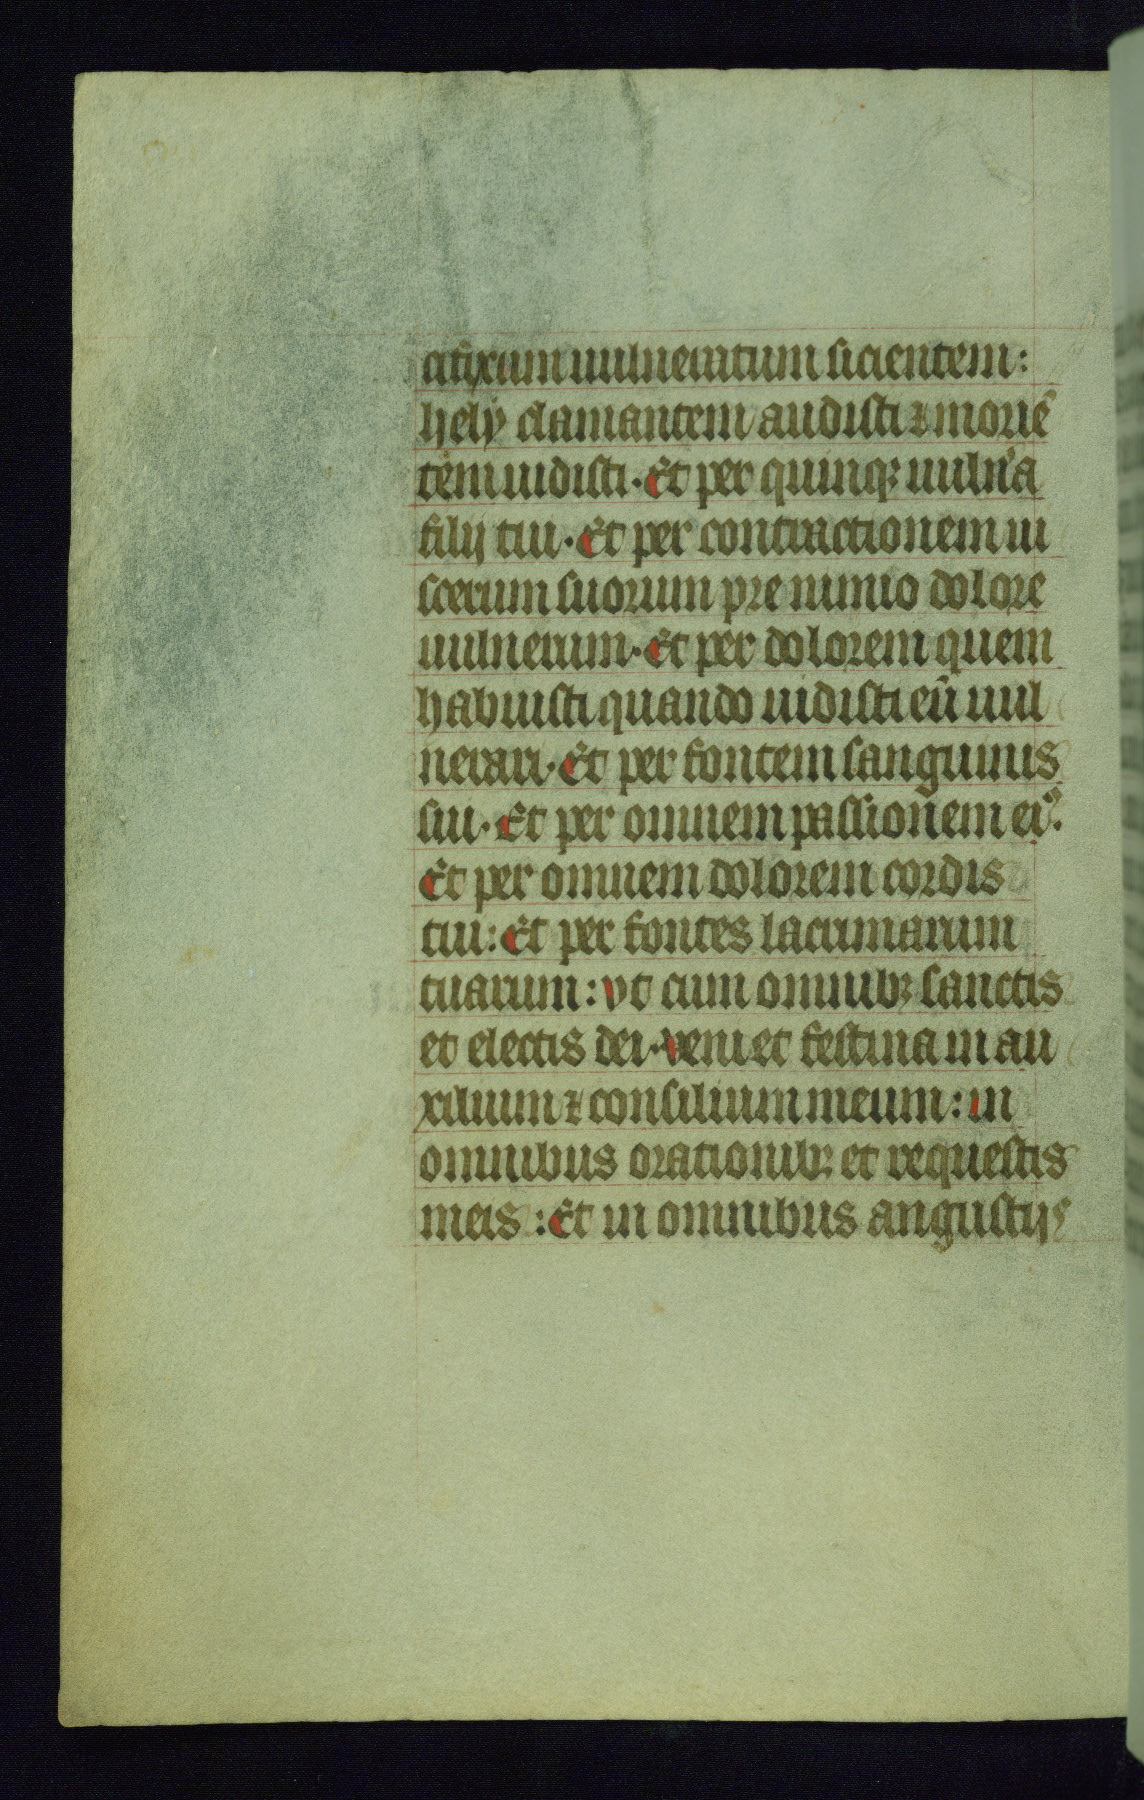 cifixum uulneratum sicientem:
hely clamantem audisti ⁊ moriē
tem uidisti. Et per quinqꝫ uuln̄a
filij tui. Et per contractionem ui
scerum suorum pre nimio dolore
uulnerum. Et per dolorem quem
habuisti quando uidisti eū uul
nerari. Et per fontem sanguinis
sui. Et per omnem passionem eiꝰ.
Et per omnem dolorem cordis
tui: Et per fontes lacrimarum
tuarum: vt cum omnibꝫ sanctis
et electis dei. veni et festina in au
xilium ⁊ consilium meum: in
omnibus orationibꝫ et requestis
meis: Et in omnibus angustijs